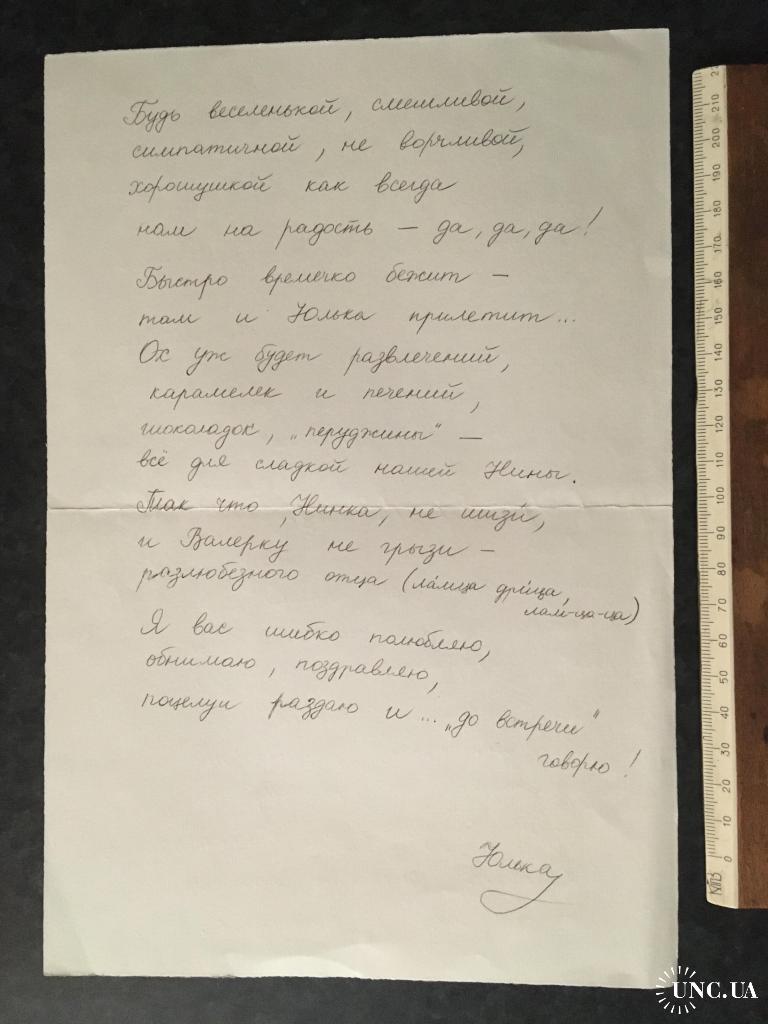 Будь веселенькой, смешливой,
симпатичной, не ворчливой,
хорошушкой как всегда
нам на радость – да, да, да!
Быстро времечко бежит –
там и Юлька прилетит...
Ох уж будет развлечений,
карамелек и печений,
шоколадок, „перуджины" –
всё для сладкой нашей Нины.
Так что, Нинка, не шизи́,
и Валерку не грызи –
разлюбезного отца (ла́мца дри́ца,
лам-ца-ца)
Я вас шибко полюбляю,
обнимаю, поздравляю,
поцелуи раздаю и... „до встречи"
говорю!
Юлька
220
210
200
190
180
170
160
150
140
130
120
110
100
90
80
70
60
50
40
30
20
10
0
UNC.UA